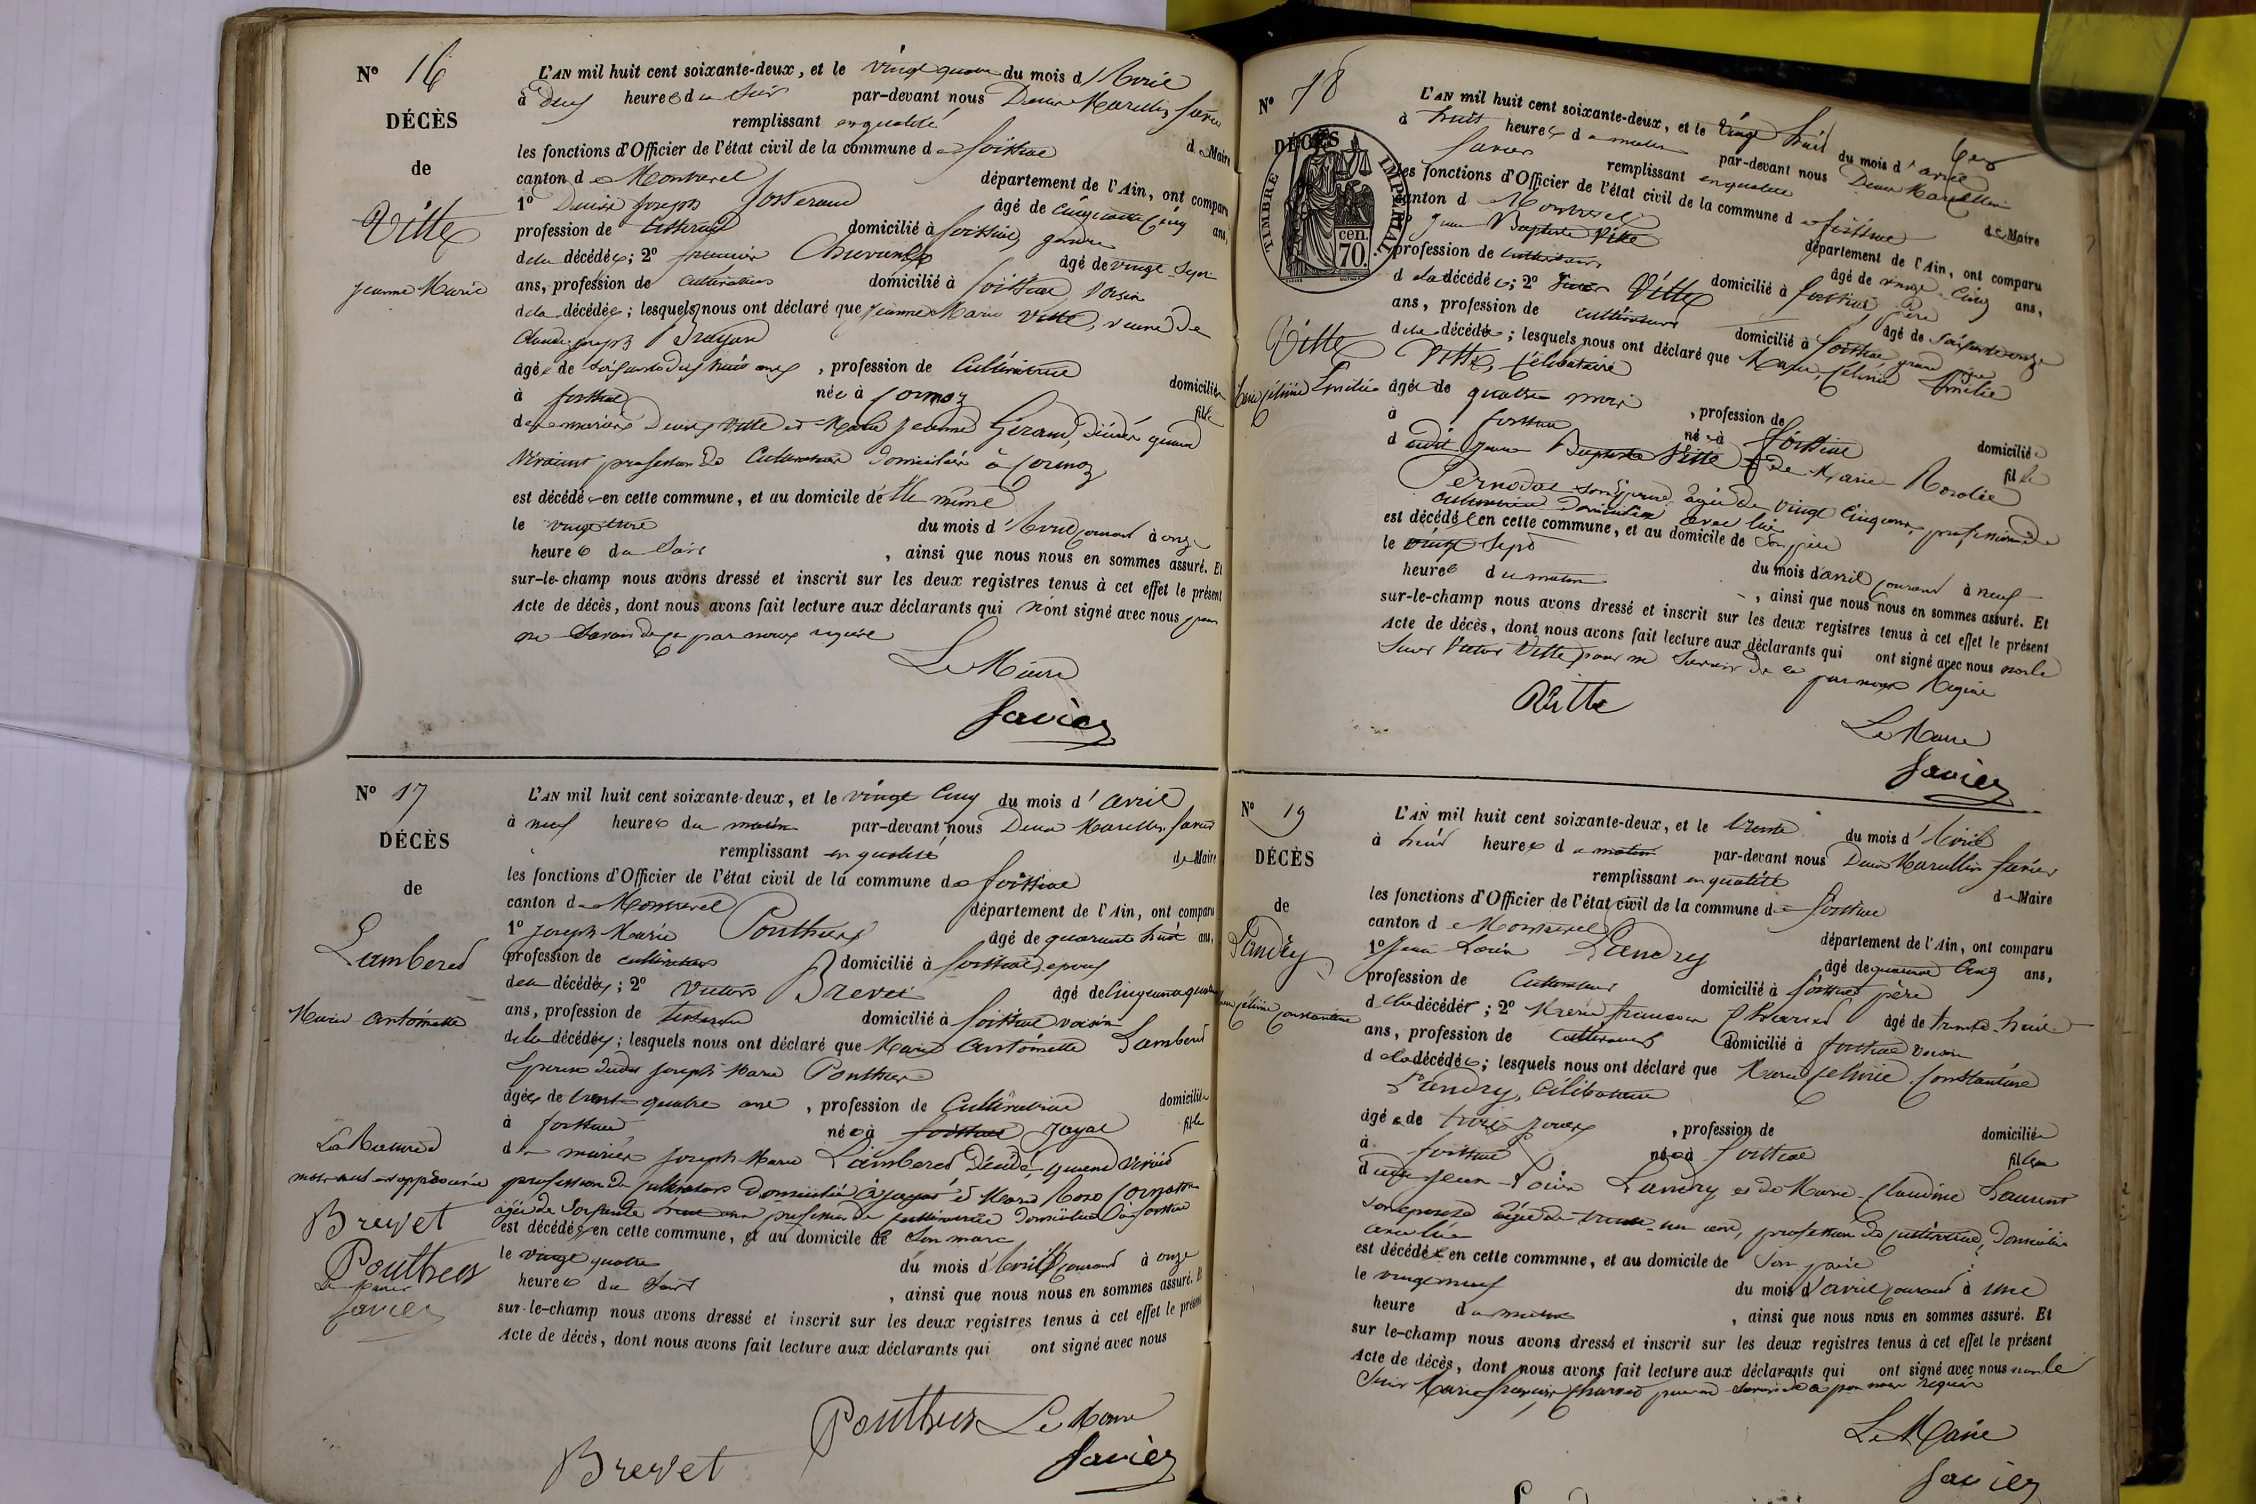 N° 16
DÉCÈS
de
Vitte
Jeanne Marie
L'AN mil huit cent soixante-deux, et le vingt quatre du mois d'Avril
à deux heures du soir par-devant nous Denis Marcellin favier
remplissant en qualité de Maire
les fonctions d'Officier de l'état civil de la commune de foissiat
canton de Montrevel département de l'Ain, ont comparu
1° Denis Joseph Josserand âgé de cinquante cinq ans,
profession de tisserand domicilié à foissiat gendre
de la décédée; 2° Chavanel âgé de vingt sept
ans, profession de cultivateur domicilié à foissiat, voisin
de la décédée; lesquels nous ont déclaré que Jeanne Marie Vitte, veuve de
Claude Joseph Brayan
âgée de soixante dix huit ans, profession de Cultivatrice domiciliée
à foissiat née à Cormoz fille
de mariés Denis Vitte et Marie Jeanne Giraud, décédés quand
vivaient profession de Cultivateurs domiciliés à Cormoz
est décédée en cette commune, et au domicile d'elle même
le vingt trois du mois d'Avril courant à onze
heures du Soir, ainsi que nous nous en sommes assuré. Et
sur-le-champ nous avons dressé et inscrit sur les deux registres tenus à cet effet le présent
Acte de décès, dont nous avons fait lecture aux déclarants qui n'ont signé avec nous pour
ne savoir de ce par nous requis
Le Maire
favier
N° 17
DÉCÈS
de
Lamberet
Marie Antoinette
L'AN mil huit cent soixante-deux, et le vingt cinq du mois d'avril
à neuf heures du matin par-devant nous Denis Marcellin favier
remplissant en qualité de Maire
les fonctions d'Officier de l'état civil de la commune de foissiat
canton de Montrevel département de l'Ain, ont comparu
1° Joseph Marie Pouthier âgé de quarante huit ans,
profession de cultivateur domicilié à foissiat, époux
de la décédée; 2° Victor Brevet âgé de cinquante quatre
ans, profession de tisserand domicilié à foissiat voisin
de la décédée; lesquels nous ont déclaré que Marie Antoinette Lamberet
Epouse dudit Joseph Marie Pouthier
âgée de trente quatre ans, profession de Cultivatrice domiciliée
à foissiat née à foissiat Jayat fille
de mariés Joseph Marie Lamberet décédé, quand vivait
profession de cultivateur domicilié à Jayat et Marie Rose
âgée de soixante ans profession de cultivatrice domiciliée à foissiat
est décédée en cette commune, et au domicile de son mari
le vingt quatre du mois d'Avril courant à onze
heures du Soir, ainsi que nous nous en sommes assuré. Et
sur-le-champ nous avons dressé et inscrit sur les deux registres tenus à cet effet le présent
Acte de décès, dont nous avons fait lecture aux déclarants qui ont signé avec nous
mot nul et approuvé
Brevet
Pouthier
Le Maire
favier
Pouthier Le Maire
Brevet favier
N° 18
DÉCÈS
TIMBRE IMPÉRIAL
70 cen.
Vitte
Marie Céline Emélie
L'AN mil huit cent soixante-deux, et le vingt huit du mois d'avril
à huit heures du matin par-devant nous Denis Marcellin
favier remplissant en qualité de Maire
les fonctions d'Officier de l'état civil de la commune de foissiat
canton de Montrevel département de l'Ain, ont comparu
1° Jean Baptiste Vitte âgé de vingt-cinq ans,
profession de cultivateur domicilié à foissiat, père
de la décédée; 2° Vitte âgé de soixante onze
ans, profession de cultivateur domicilié à foissiat, grand père
de la décédée; lesquels nous ont déclaré que Marie, Céline Emélie
Vitte, Célibataire
âgée de quatre mois, profession de domiciliée
à foissiat née à foissiat fille
dudit Jean Baptiste Vitte et de Marie Rosalie
Pernodat son épouse âgée de vingt cinq ans, profession de
cultivatrice domiciliée avec lui
est décédée en cette commune, et au domicile de son père
le vingt sept du mois d'avril courant à neuf
heures du matin, ainsi que nous nous en sommes assuré. Et
sur-le-champ nous avons dressé et inscrit sur les deux registres tenus à cet effet le présent
Acte de décès, dont nous avons fait lecture aux déclarants qui ont signé avec nous non le
Vitte pour ne savoir de ce par nous requis
Vitte
Le Maire
favier
N° 19
DÉCÈS
de
Landry
Marie Céline Constantine
L'AN mil huit cent soixante-deux, et le trente du mois d'Avril
à huit heures du matin par-devant nous Denis Marcellin favier
remplissant en qualité de Maire
les fonctions d'Officier de l'état civil de la commune de foissiat
canton de Montrevel département de l'Ain, ont comparu
1° Jean Louis Landry âgé de quarante cinq ans,
profession de Cultivateur domicilié à foissiat père
de la décédée; 2° Marie françois Charnet âgé de trente-huit
ans, profession de cultivateur domicilié à foissiat voisin
de la décédée; lesquels nous ont déclaré que Marie Céline Constantine
Landry, Célibataire
âgée de trois jours, profession de domiciliée
à foissiat née à foissiat fille
dudit Jean-Louis Landry et de Marie-Claudine Laurent
son épouse âgée de trente-un ans, profession de cultivatrice, domiciliée
avec lui
est décédée en cette commune, et au domicile de son père
le vingt neuf du mois d'avril courant à une
heure du matin, ainsi que nous nous en sommes assuré. Et
sur-le-champ nous avons dressé et inscrit sur les deux registres tenus à cet effet le présent
Acte de décès, dont nous avons fait lecture aux déclarants qui ont signé avec nous non le
Sieur Marie françois Charnet pour ne savoir de ce par nous requis
Le Maire
favier